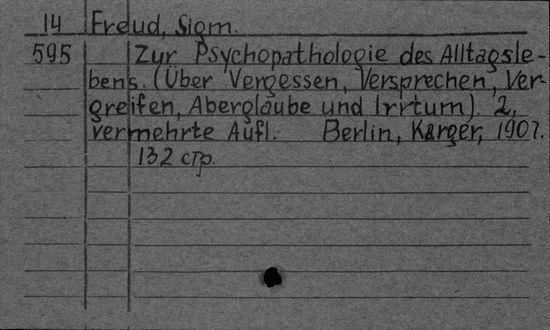 14 Freud, Sigm.
595 Zur Psychopathologie des Alltagsle-
bens. (Über Vergessen, Versprechen, Ver-
greifen, Aberglaube und Irrtum). 2,
vermehrte Aufl. Berlin, Karger, 1907.
132 стр.